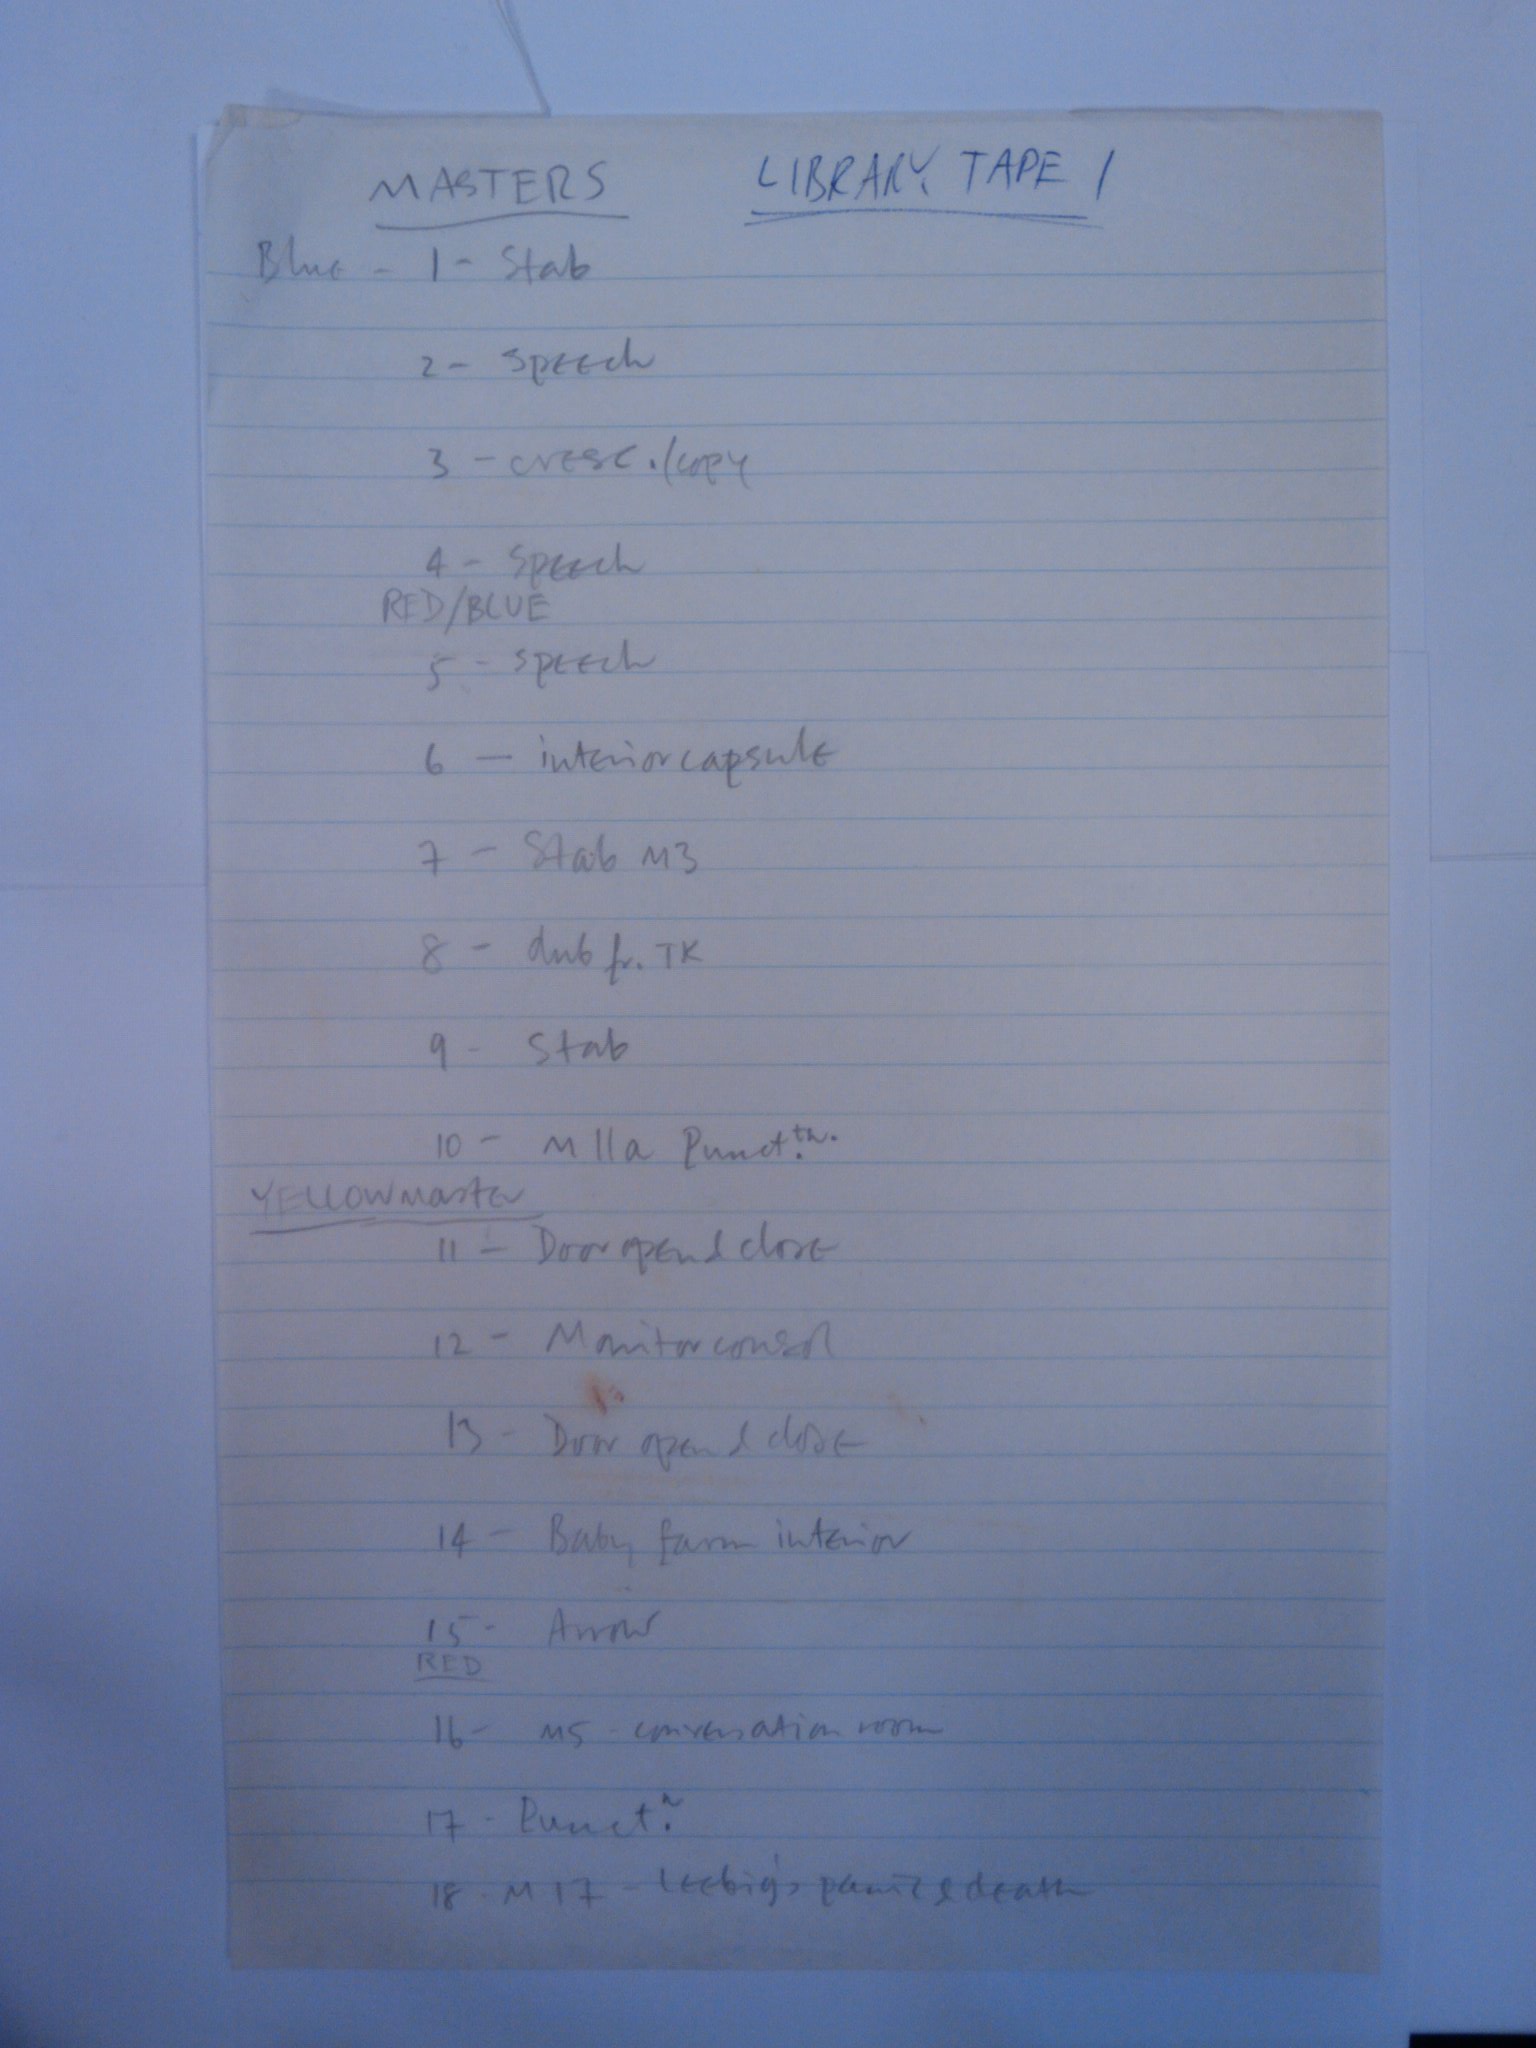 MASTERS LIBRARY TAPE 1
Blue - 1 - Stab
2 - Speech
3 - cresc./copy
4 - Speech
RED/BLUE
5 - speech
6 - interior capsule
7 - Stab M3
8 - dub fr. TK
9 - Stab
10 - M11a Punct.tn.
YELLOW master
11 - Door open & close
12 - Monitor consol
13 - Door open & close
14 - Baby farm interior
15 - Arrow
RED
16 - M5 - conversation room
17 - Punct.n
18 - M17 - Leebig's panic & death